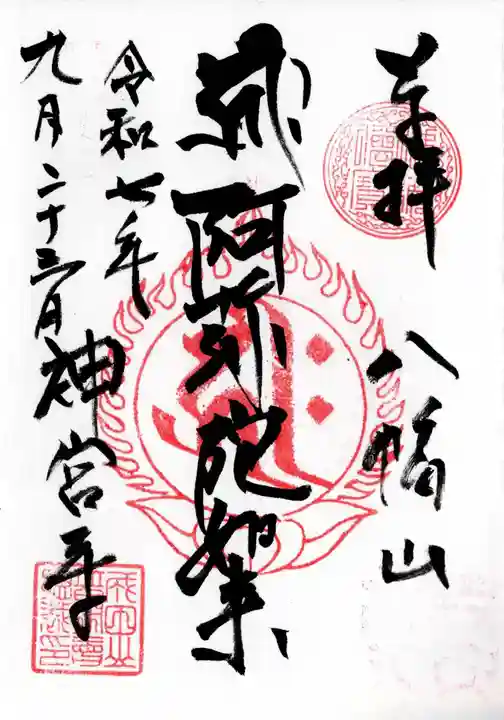 奉拝　八幡山
阿弥陀如来
令和七年
九月二十三日　神宮寺